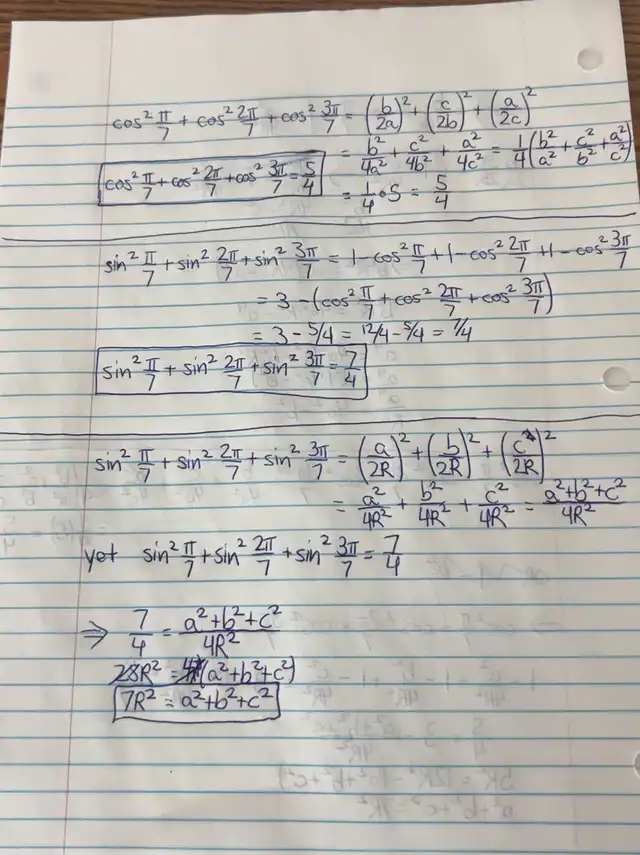 cos² π/7 + cos² 2π/7 + cos² 3π/7 = (b/2a)² + (c/2b)² + (a/2c)²
= b²/4a² + c²/4b² + a²/4c² = 1/4 (b²/a² + c²/b² + a²/c²)
cos² π/7 + cos² 2π/7 + cos² 3π/7 = 5/4
= 1/4 • 5 = 5/4
sin² π/7 + sin² 2π/7 + sin² 3π/7 = 1 - cos² π/7 + 1 - cos² 2π/7 + 1 - cos² 3π/7
= 3 - (cos² π/7 + cos² 2π/7 + cos² 3π/7)
= 3 - 5/4 = 12/4 - 5/4 = 7/4
sin² π/7 + sin² 2π/7 + sin² 3π/7 = 7/4
sin² π/7 + sin² 2π/7 + sin² 3π/7 = (a/2R)² + (b/2R)² + (c/2R)²
= a²/4R² + b²/4R² + c²/4R² = a²+b²+c²/4R²
yet sin² π/7 + sin² 2π/7 + sin² 3π/7 = 7/4
⇒ 7/4 = a²+b²+c²/4R²
28R² = 4(a²+b²+c²)
7R² = a²+b²+c²